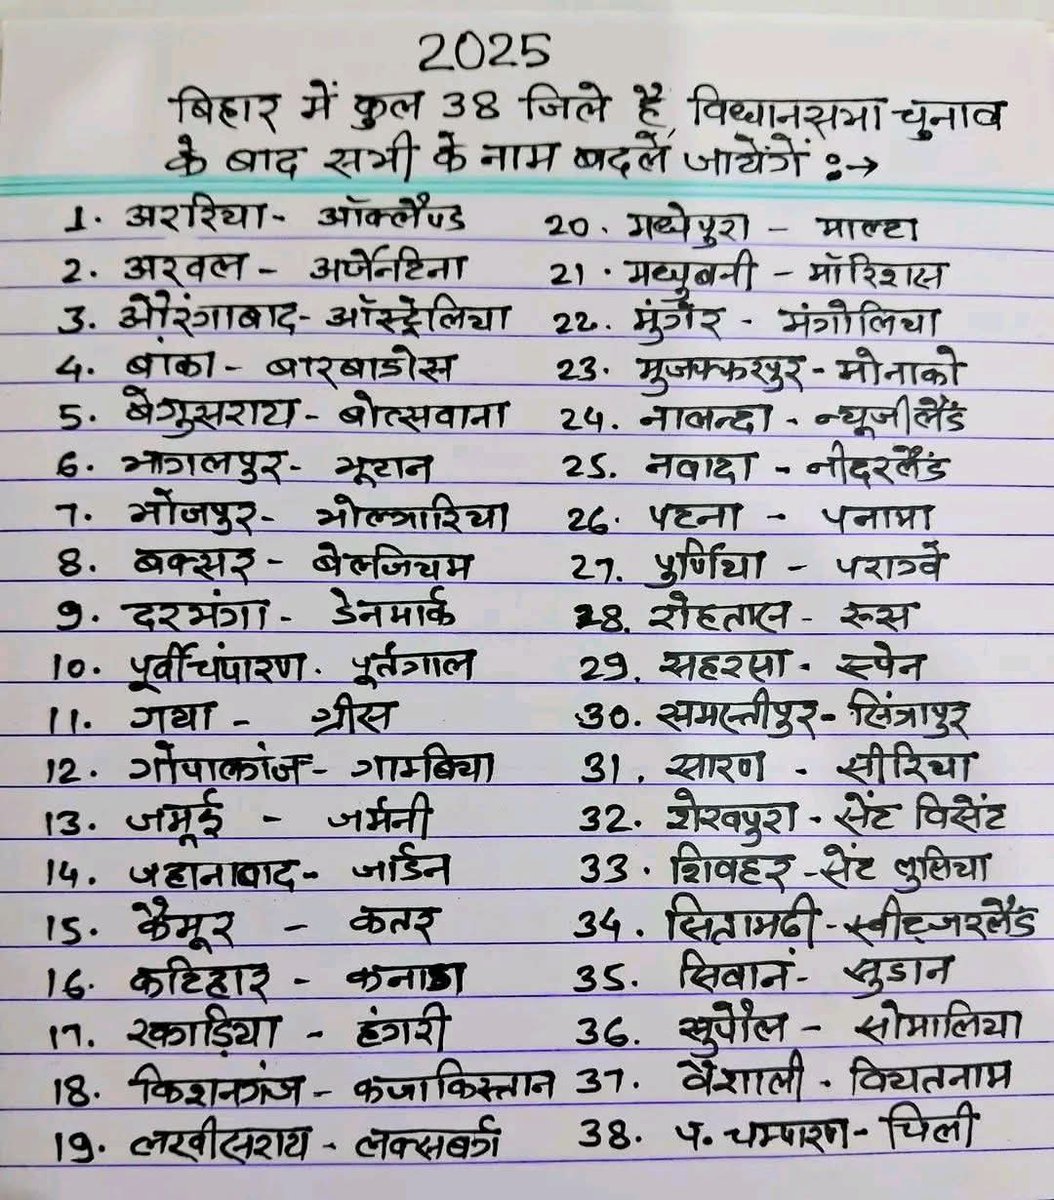 2025
बिहार में कुल 38 जिले है, विधानसभा चुनाव
के बाद सभी के नाम बदले जायेंगें :→
1. अररिया - ऑक्लैण्ड
2. अरवल - अर्जेनटिना
3. औरंगाबाद - ऑस्ट्रेलिया
4. बांका - बारबाडोस
5. बेगुसराय - बोत्सवाना
6. भागलपुर - भूटान
7. भोजपुर - भोल्गारिया
8. बक्सर - बेल्जियम
9. दरभंगा - डेनमार्क
10. पूर्वी चंपारण - पूर्तगाल
11. गया - ग्रीस
12. गोपालगंज - गाम्बिया
13. जमूई - जर्मनी
14. जहानाबाद - जार्डन
15. कैमूर - कतर
16. कटिहार - कनाडा
17. खगाड़िया - हंगरी
18. किशनगंज - कजाकिस्तान
19. लखीसराय - लक्सबर्ग
20. मधेपुरा - माल्टा
21. मधुबनी - मॉरिशस
22. मुंगेर - मंगोलिया
23. मुजफ्फरपुर - मोनाको
24. नालन्दा - न्यूजीलैंड
25. नवादा - नीदरलैंड
26. पटना - पनामा
27. पुर्णिया - पराग्वे
28. रोहतास - रूस
29. सहरसा - स्पेन
30. समस्तीपुर - सिंगापुर
31. सारण - सीरिया
32. शेखपुरा - सेंट विसेंट
33. शिवहर - सेंट लुसिया
34. सितामढी - स्वीट्जरलैंड
35. सिवान - सुडान
36. सुपौल - सोमालिया
37. वैशाली - वियतनाम
38. प. चम्पारण - चिली